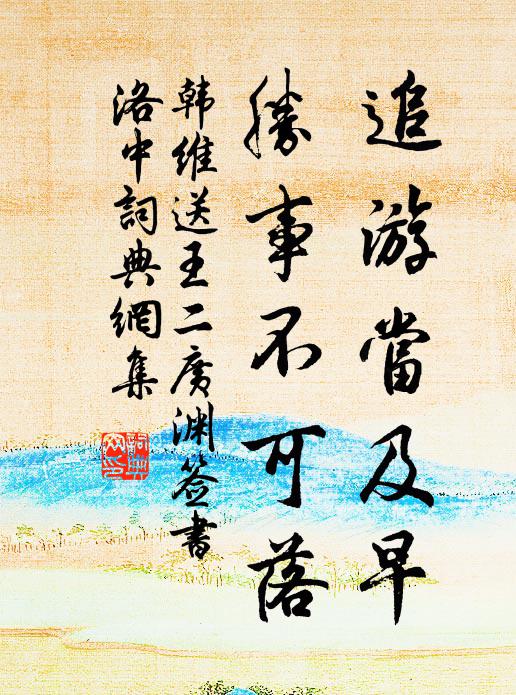 追游當及早
勝事不可落
韩維送王二廣渊簽書
洛中詞典網集